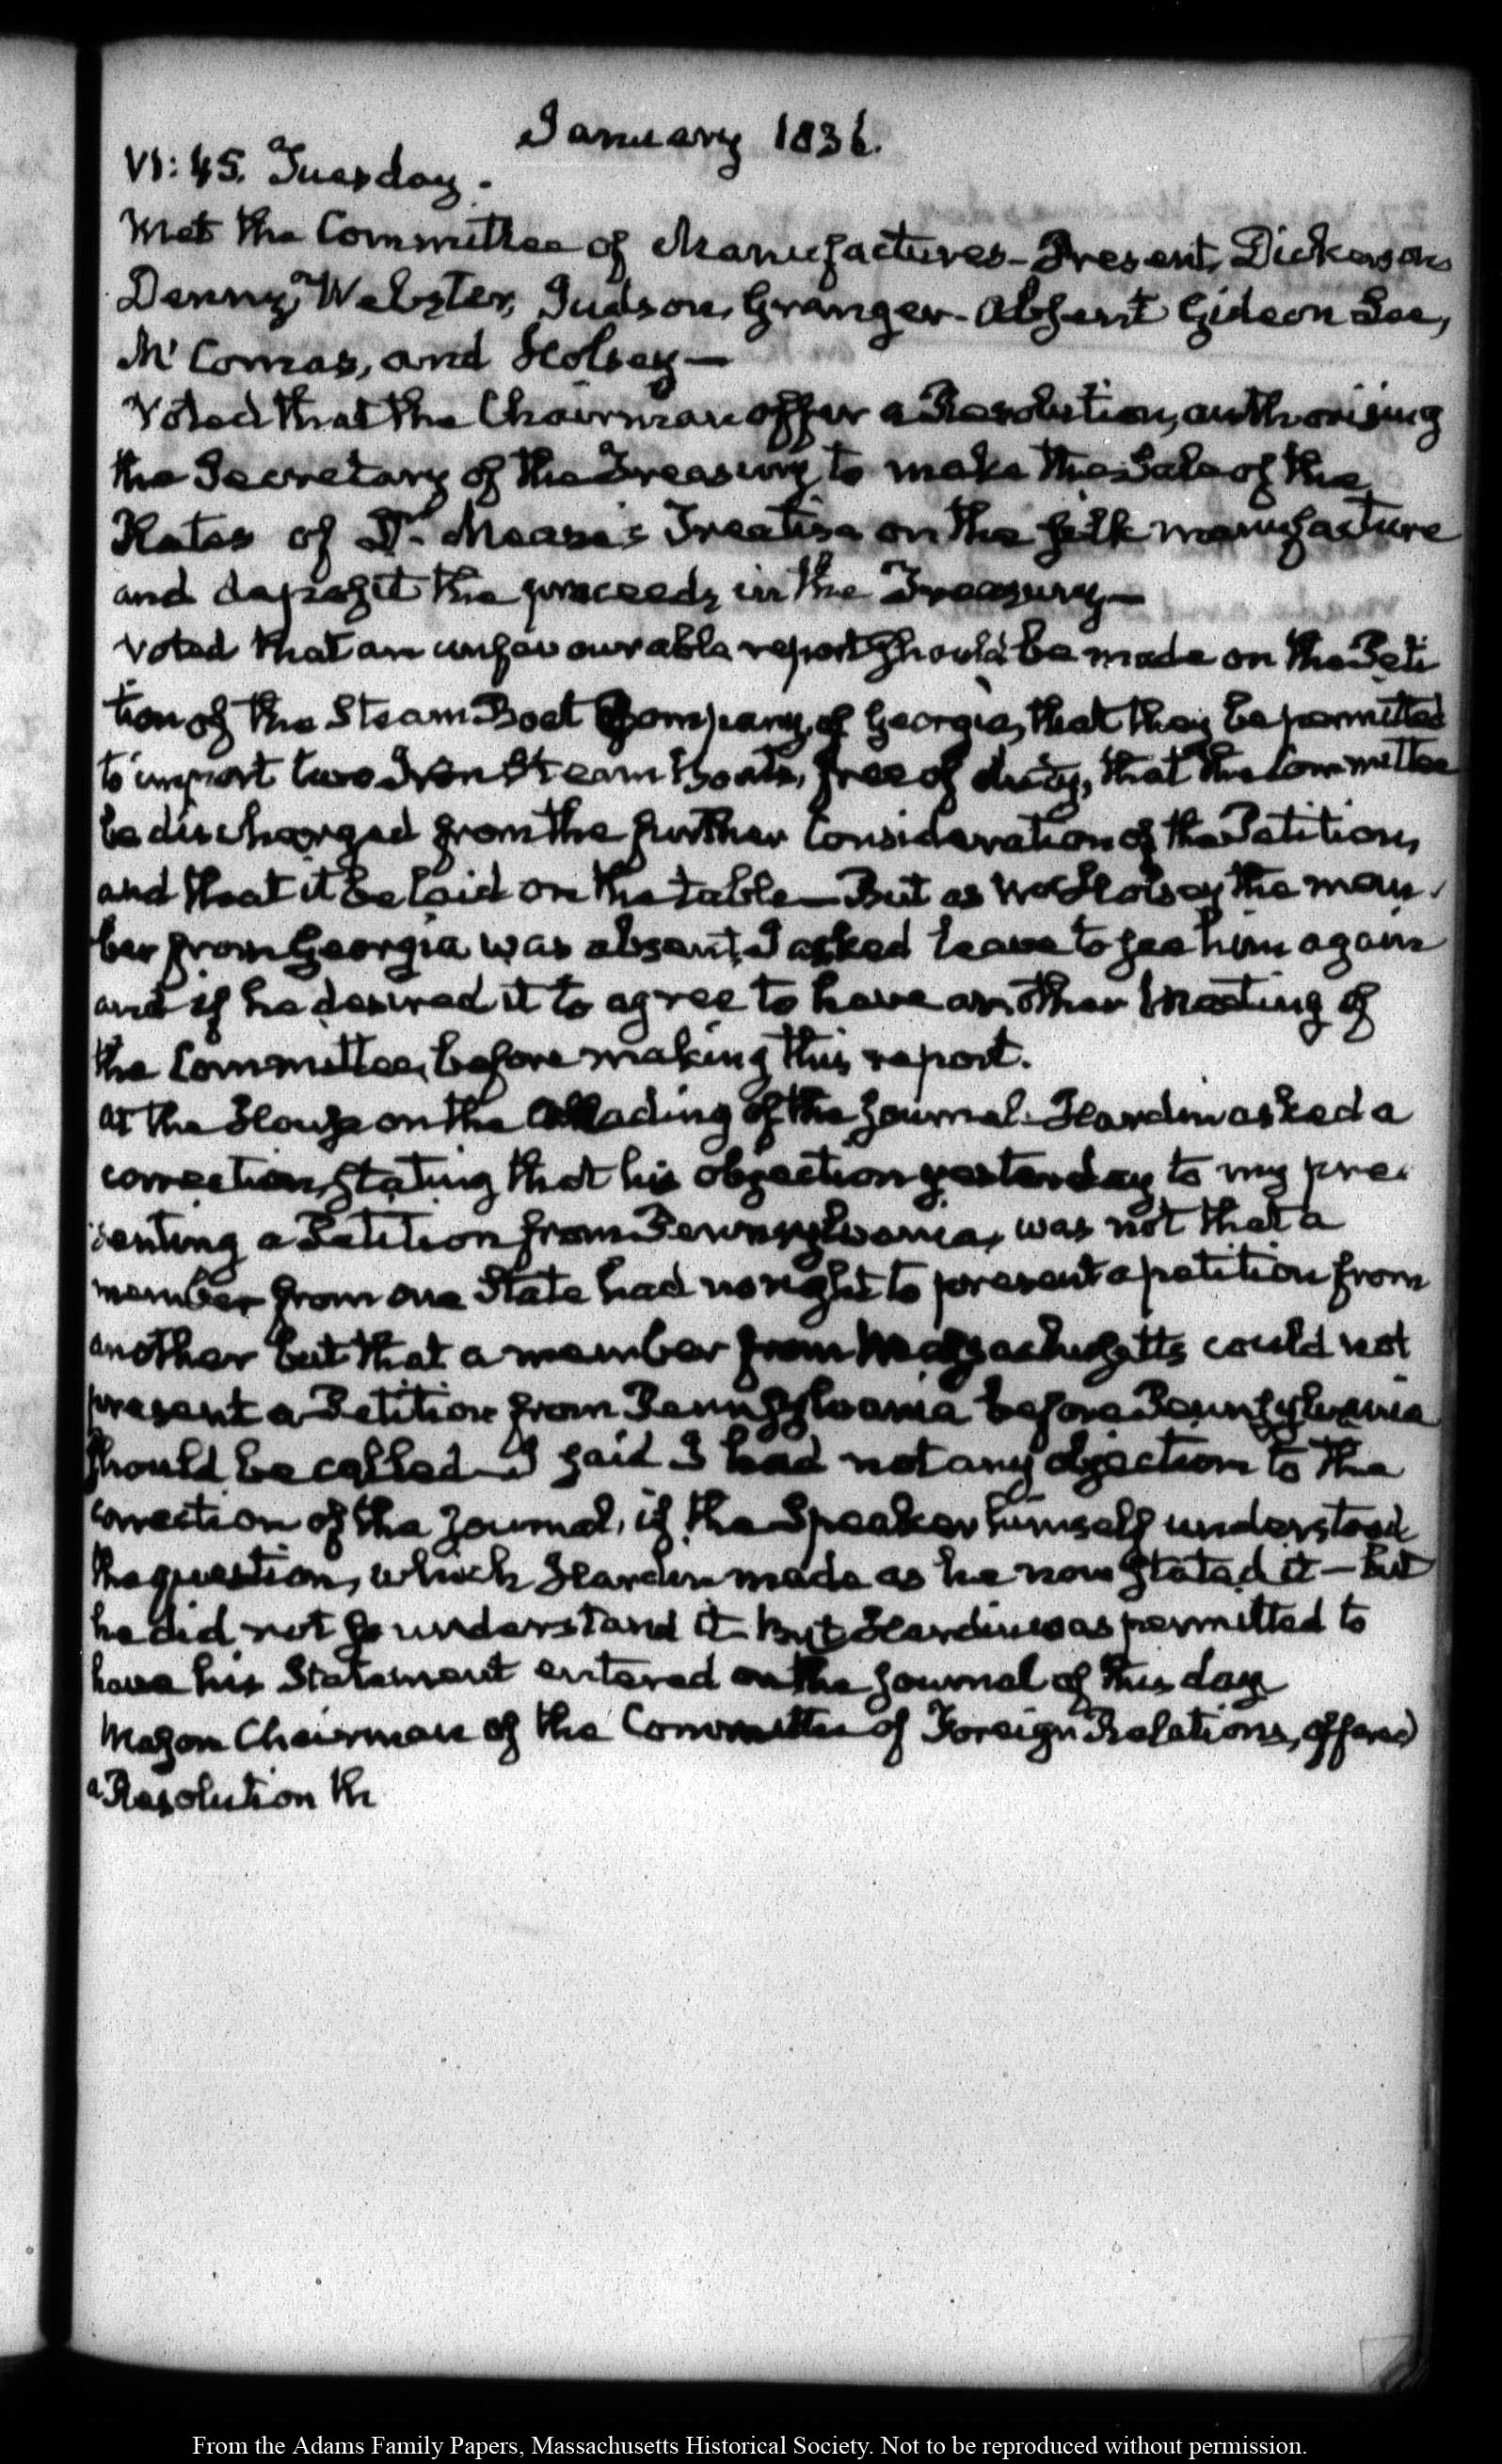 January 1836.
VI: 45. Tuesday.
Met the Committee of Manufactures - Present, Dickerson
Denny, Webster, Judson, Granger - Absent Gideon Lee,
Mc Comas, and Holsey —
Voted that the Chairman offer a Resolution, authorising
the Secretary of the Treasury to make the Sale of the
Plates of Dr. Mease's Treatise on the silk manufacture
and deposit the proceeds in the Treasury —
voted that an unfavourable report should be made on the Peti
tion of the Steam Boat Company, of Georgia, that they be permitted
to import two Iron Steam Boats, free of duty, that the Committee
be discharged from the further Consideration of the Petition,
and that it be laid on the table — But as Mr Holsey the mem
ber from Georgia was absent, I asked leave to see him again
and if he desired it to agree to have another Meeting of
the Committee, before making this report.
at the House on the reading of the Journal - Hardin asked a
correction, stating that his objection yesterday to my pre
senting a Petition from Pennsylvania, was not that a
member from one State had no right to present a petition from
another but that a member from Massachusetts could not
present a Petition from Pennsylvania before Pennsylvania
should be called - I said I had not any objection to the
correction of the Journal, if the Speaker himself understood
the question, which Hardin made as he now stated it — but
he did not so understand it - But Hardin was permitted to
have his Statement entered on the Journal of this day
Mason Chairman of the Committee of Foreign Relations, offered
a Resolution th
From the Adams Family Papers, Massachusetts Historical Society. Not to be reproduced without permission.